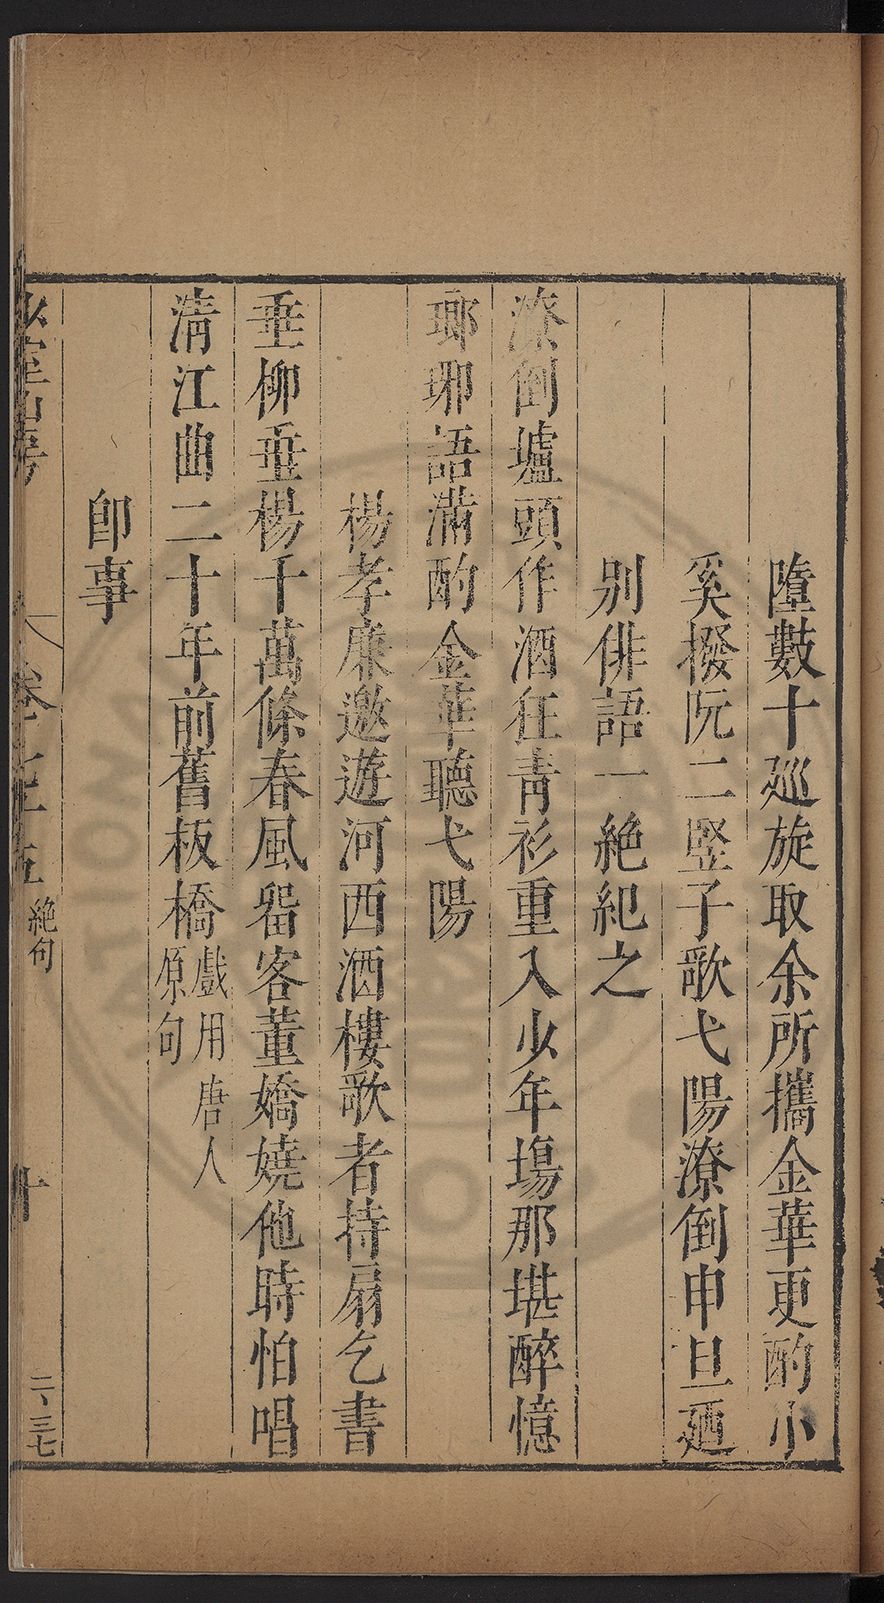 墮數十廵旋取余所攜金華更酌小
奚撥阮二竪子歌弋陽潦倒申旦廼
別俳語一絶紀之
潦倒壚頭作酒狂青衫重入少年塲那堪醉憶
瑯琊語滿酌金華聽弋陽
楊孝廉邀遊河西酒樓歌者持扇乞書
垂柳垂楊千萬條春風畱客董嬌嬈他時怕唱
淸江曲二十年前舊板橋戲用唐人
原句
卽事
少室山房
卷七十五
絶句
十
二、三七